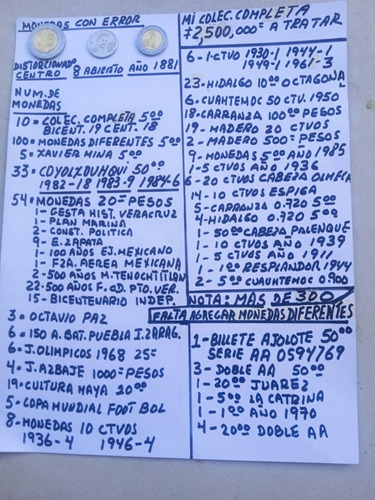 MONEDAS CON ERROR
DISTORCIONADO
CENTRO 8 ABIERTO AÑO 1881
NUM. DE
MONEDAS
10 = COLEC. COMPLETA 5.00
BICENT. 19 CENT. 18
100 = MONEDAS DIFERENTES 5.00
5 = XAVIER MINA 5.00
33 = COYOLXOUHQUI 50.00
1982-18 1983-9 1984-6
54 = MONEDAS 20 = PESOS
1 - GESTA HIST. VERACRUZ
1 - PLAN MARINA
2 - CONST. POLITICA
9 - E. ZAPATA
1 - 100 AÑOS EJ. MEXICANO
1 - FZA. AEREA MEXICANA
2 - 500 AÑOS M. TENOCHTITLAN
22 - 500 AÑOS F. CD. PTO. VER.
15 - BICENTENARIO INDEP.
3 = OCTAVIO PAZ
6 = 150 A. BAT. PUEBLA I. ZARAG.
6 = J. OLIMPICOS 1968 25=
4 = J. AZBAJE 1000 = PESOS
19 = CULTURA MAYA 20.00
5 = COPA MUNDIAL FOOT BOL
8 = MONEDAS 10 CTVOS
1936-4 1946-4
MI COLEC. COMPLETA
$2,500,000= A TRATAR
6 - 1 CTVO 1930-1 1944-1
1949-1 1961-3
23 - HIDALGO 10.00 OCTAGONAL
6 - CUAHTEMOC 50 CTV. 1950
18 - CARRANZA 100.00 PESOS
19 - MADERO 20 CTVOS
2 - MADERO 500 = PESOS
9 - MONEDAS 5.00 AÑO 1985
1 - 5 CTVOS AÑO 1936
6 - 20 CTVOS CABEZA OLMECA
14 - 10 CTVOS ESPIGA
5 - CARRANZA 0.720 5.00
4 - HIDALGO 0.720 5.00
1 - 50.00 CABEZA PALENQUE
1 - 10 CTVOS AÑO 1939
1 - 5 CTVOS AÑO 1911
1 - 10.00 RESPLANDOR 1944
2 - 5.00 CUAHTEMOC 0.900
NOTA: MAS DE 300
FALTA AGREGAR MONEDAS DIFERENTES
1 - BILLETE AJOLOTE 50.00
SERIE AA 0594769
3 - DOBLE AA 50.00
1 - 20.00 JUAREZ
1 - 5.00 LA CATRINA
1 - 1.00 AÑO 1970
4 - 20.00 DOBLE AA